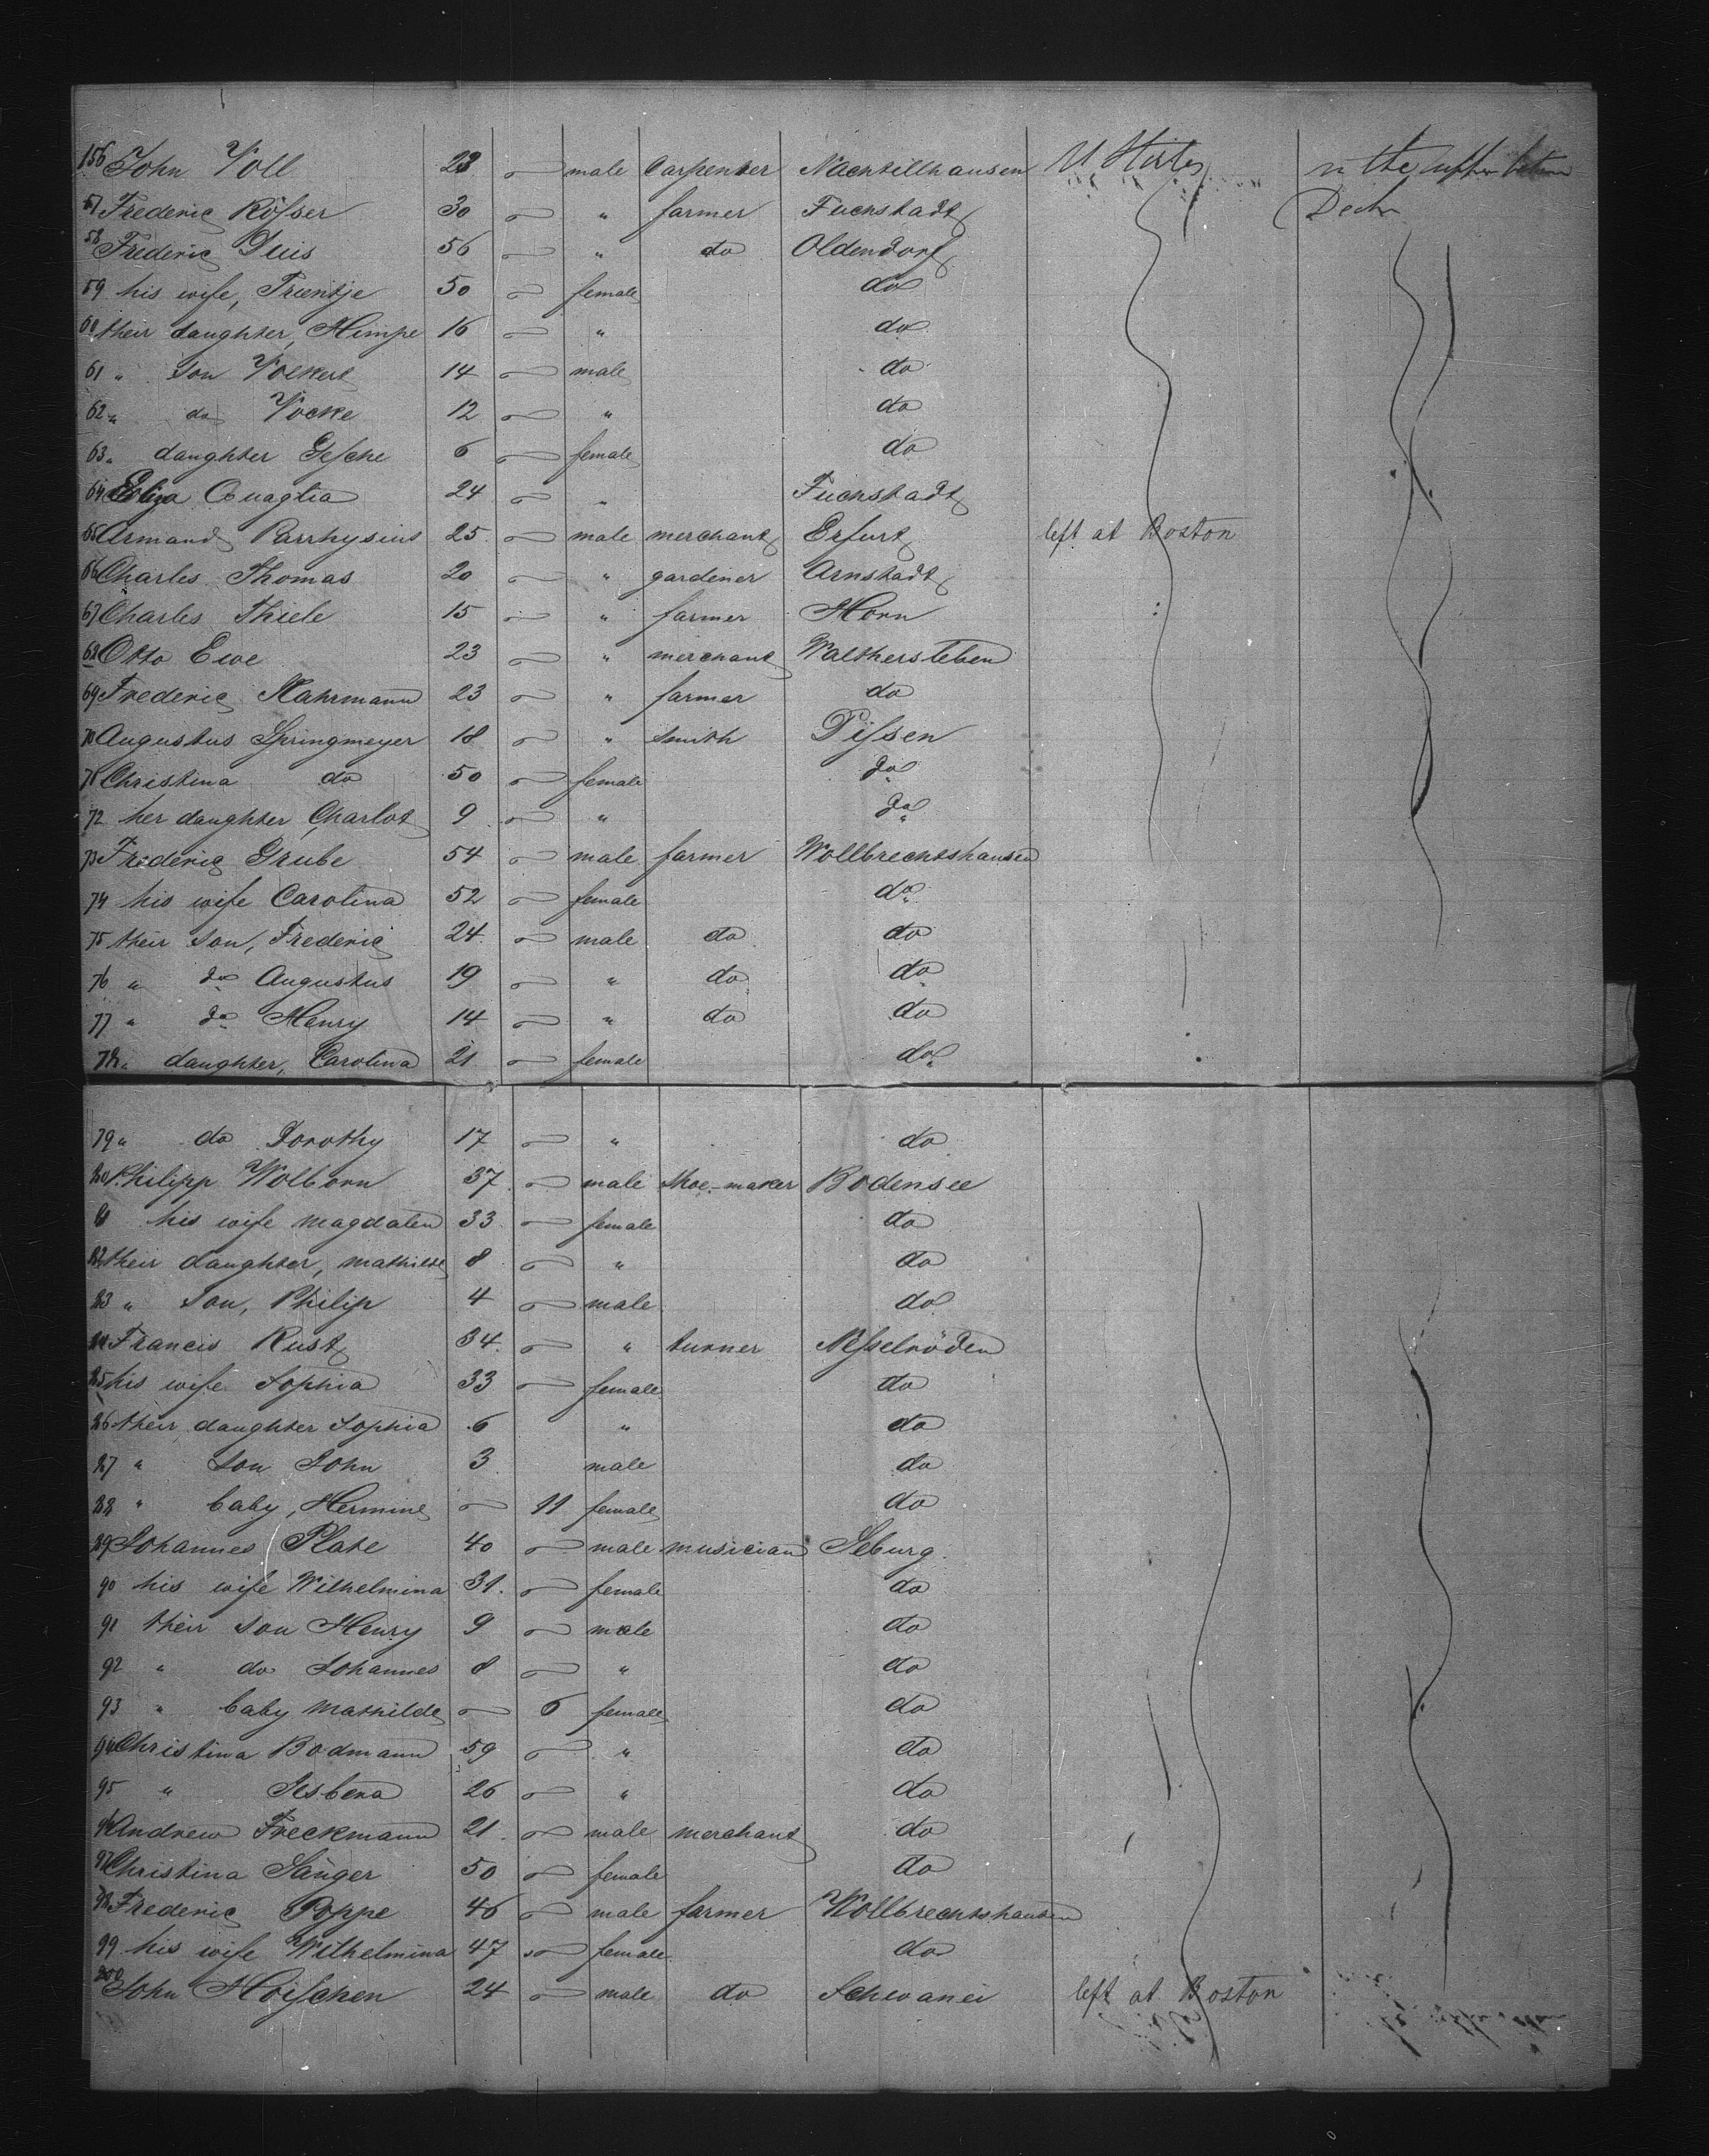 156 John Voll 23 male Carpenter Nachtillhausen U States in the upper between
57 Frederic Rösser 30 " farmer Fuchstadt Decks
58 Frederic Duis 56 " do Oldendorf
59 his wife, Trientje 50 female do
60 their daughter, Himpe 16 " do
61 " son Volkert 14 male do
62 " do Vocke 12 " do
63 " daughter Gesche 6 female do
64 Eliza Quaglia 24 " Fuchstadt
65 Armand Parrhysius 25 male merchant Erfurt left at Boston
66 Charles Thomas 20 " gardener Arnstadt
67 Charles Thiele 15 " farmer Horn
68 Otto Ewe 23 " merchant Walthersleben
69 Frederic Nahrmann 23 " farmer do
70 Augustus Springmeyer 18 " smith Dissen
71 Christina do 50 female do
72 her daughter Charlot 9 " do
73 Frederic Grube 54 male farmer Wollbrechtshausen
74 his wife Carolina 52 female do
75 their son, Frederic 24 male do do
76 " do Augustus 19 " do do
77 " do Henry 14 " do do
78 " daughter, Carolina 21 female do
79 " do Dorothy 17 " do
80 Philipp Wolborn 37 male shoe-maker Bodensee
81 his wife Magdalen 33 female do
82 their daughter, Mathilde 8 " do
83 " son, Philip 4 male do
84 Francis Rust 34 " turner Nesselröden
85 his wife Sophia 33 female do
86 their daughter Sophia 6 " do
87 " son John 3 male do
88 " baby, Hermine 11 female do
89 Johannes Plate 40 male musician Seburg
90 his wife Wilhelmina 31 female do
91 their son Henry 9 male do
92 " do Johannes 8 " do
93 " baby Mathilde 6 female do
94 Christina Bodmann 59 " do
95 " 26 " do
96 Andrew Freckmann 21 male merchant do
97 Christina Sänger 50 female do
98 Frederic Poppe 46 male farmer Wollbrechtshausen
99 his wife Wilhelmina 47 female do
200 John Hoischen 24 male do Schwanei left at Boston